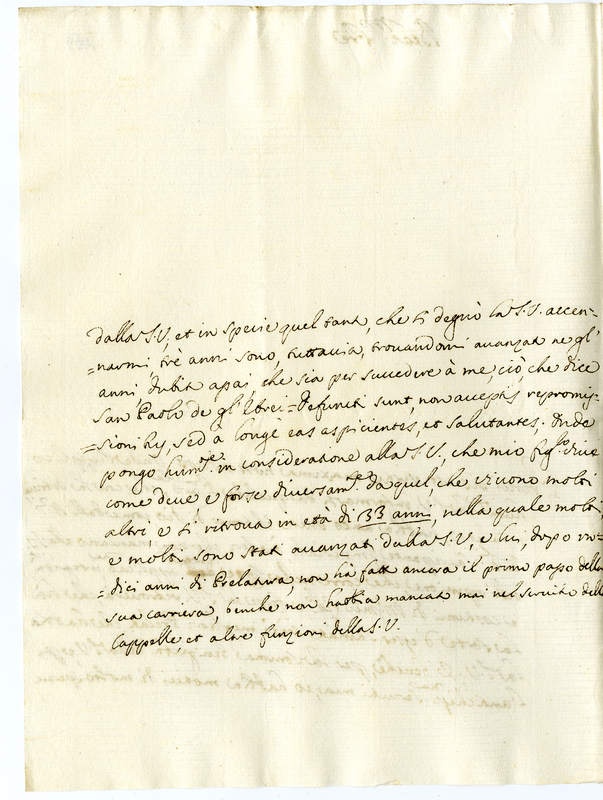 dalla S.V, et in specie quel tant, che si degnò la S.V. accen-
=narmi trè anni sono, tuttavia, trovandomi avanzat ne gl'
anni, dubit assai, che sia per succedere à me, ciò, che dice
San Paolo de gl'Ebrei = Defuncti sunt, non acceptis repromis-
=sionibus, sed à longe eas aspicientes, et salutantes. Onde
pongo humte. in consideratione alla S.V, che mio figlo. vive
come deve, e forse diversamte. da quel, che vivono molti
altri, e si ritrova in età di 33 anni, nella quale molti,
e molti sono stati avanzati dalla S.V, e lui, dopo un-
=dici anni di Prelatura, non hà fatt ancora il primo passo della
sua carriera, benche non habbia mancat mai nel servitio delle
Cappelle, et altre funzioni della S.V.